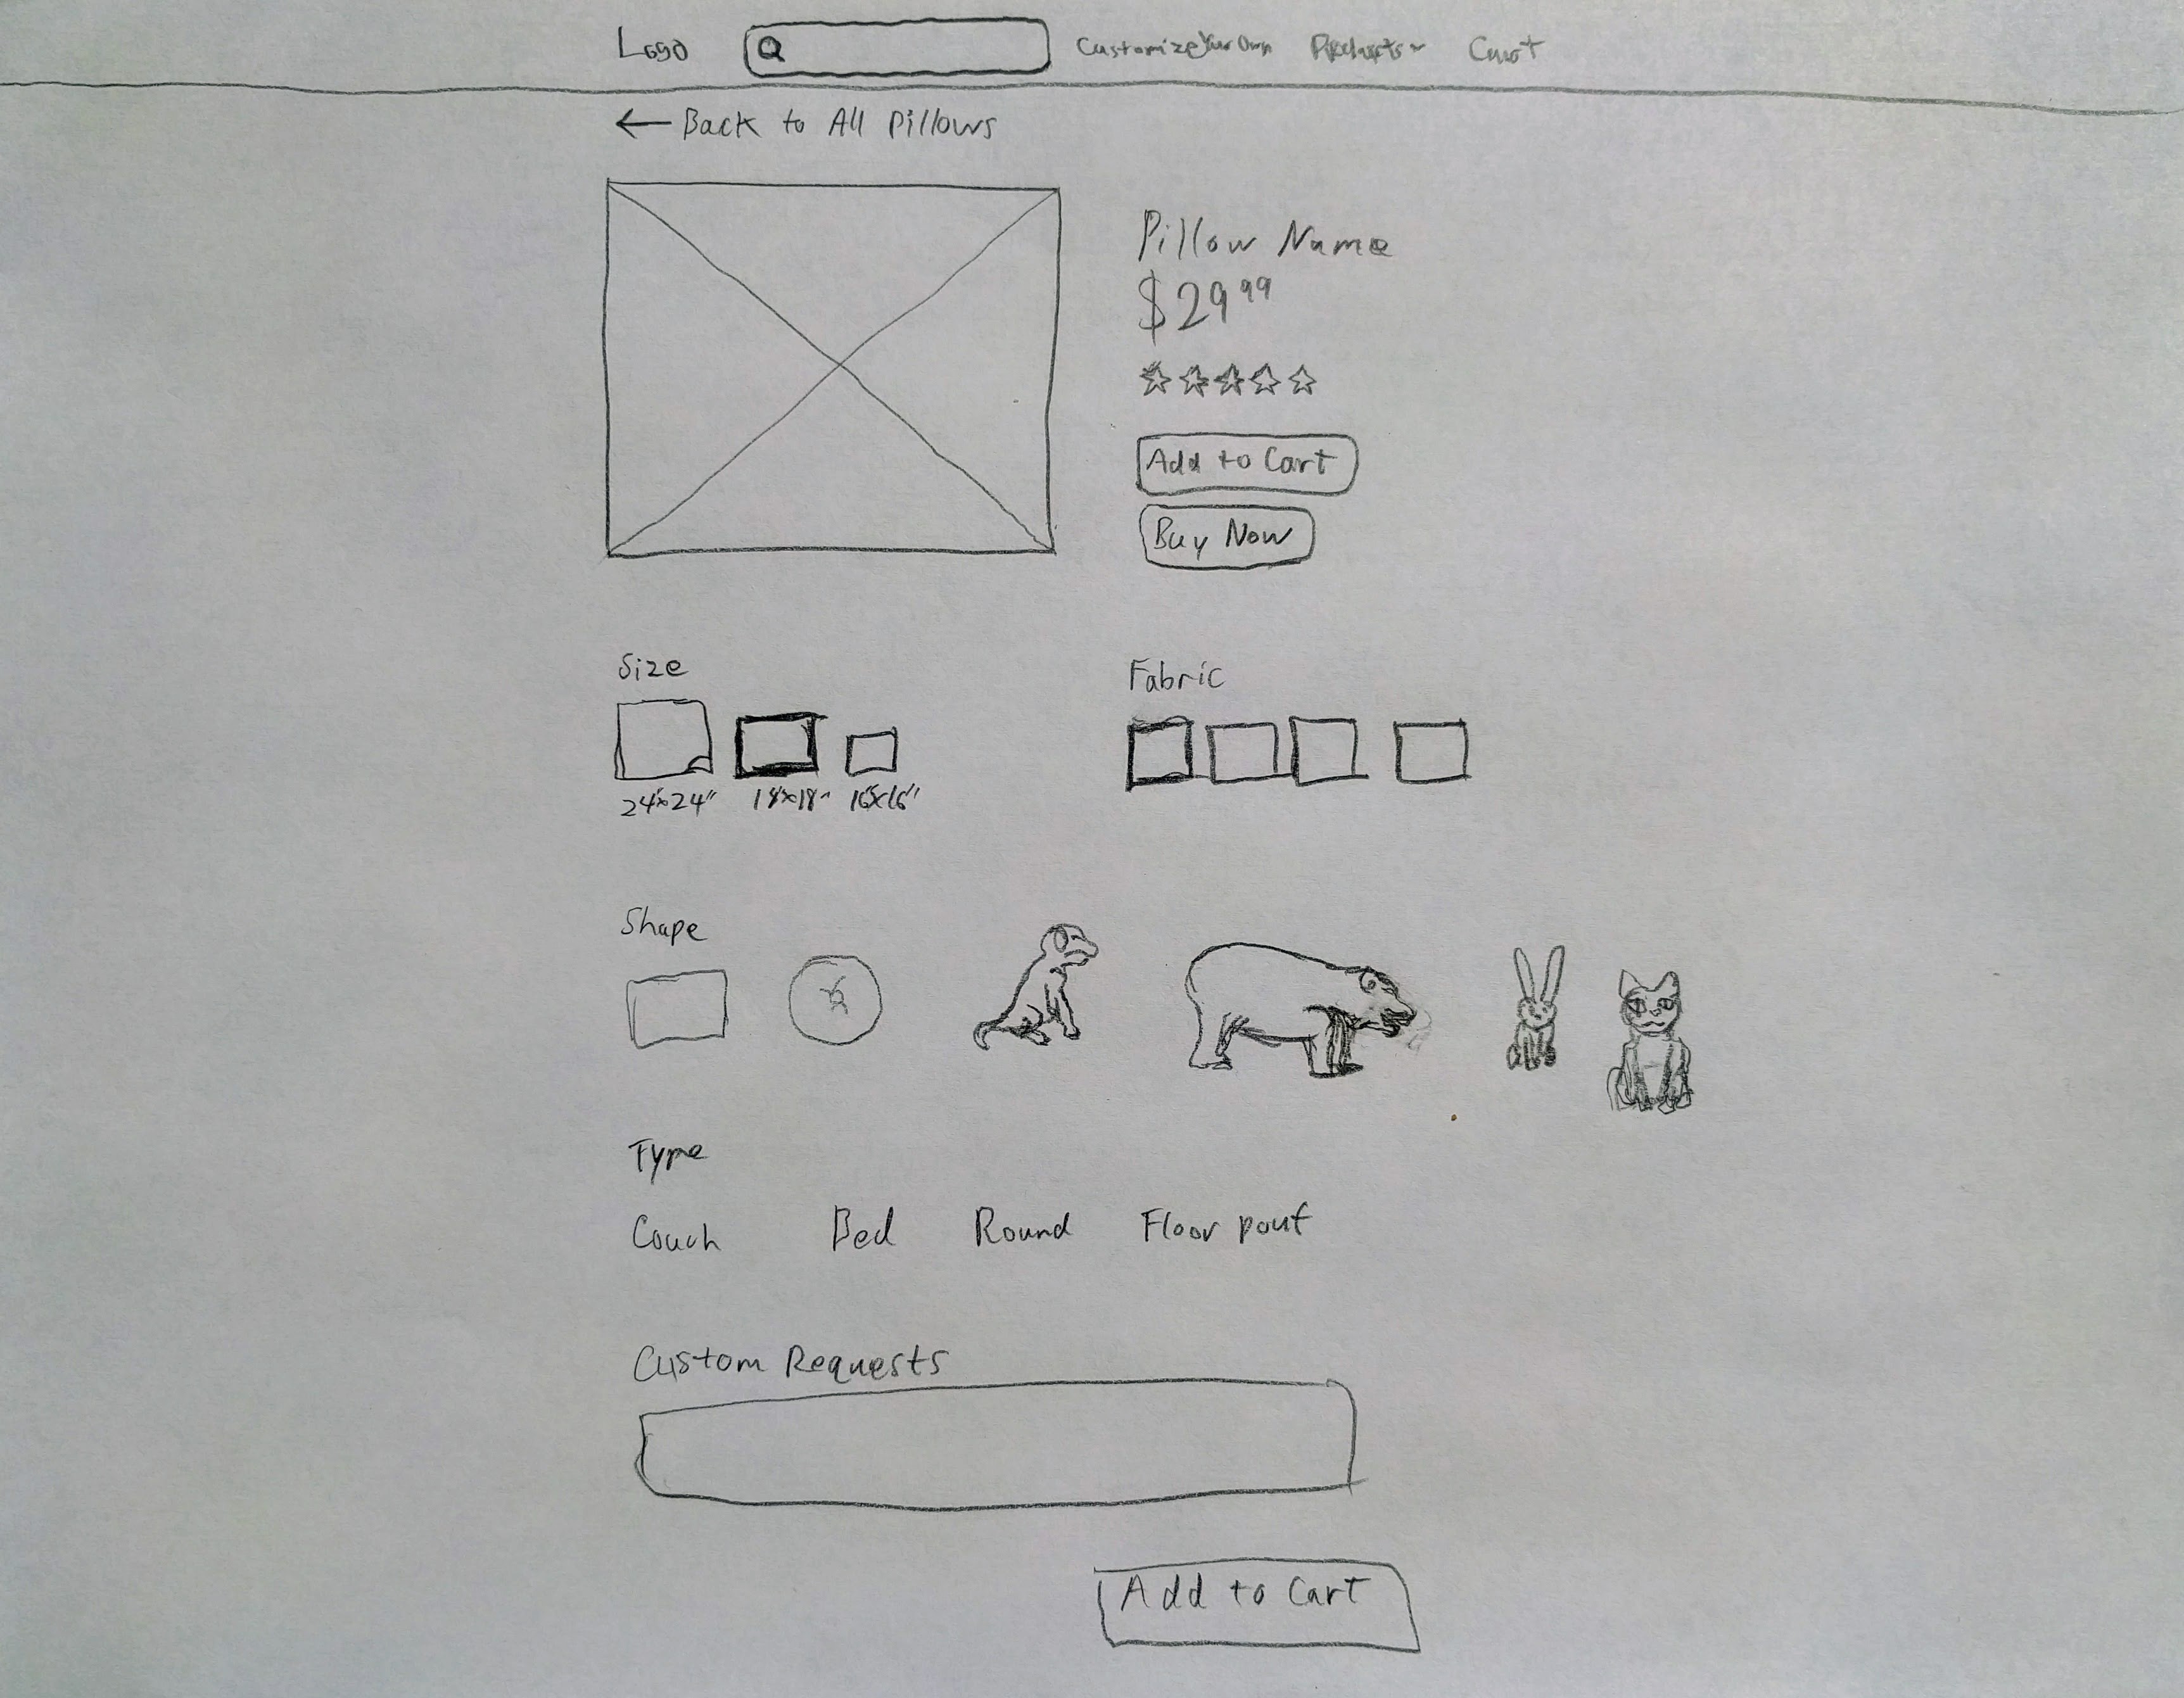 Logo Customize Your Own Products Cart
← Back to All Pillows
Pillow Name
$29 99
Add to Cart
Buy Now
Size
24"x24" 18"x18" 16"x16"
Fabric
Shape
Type
Couch Bed Round Floor pouf
Custom Requests
Add to Cart